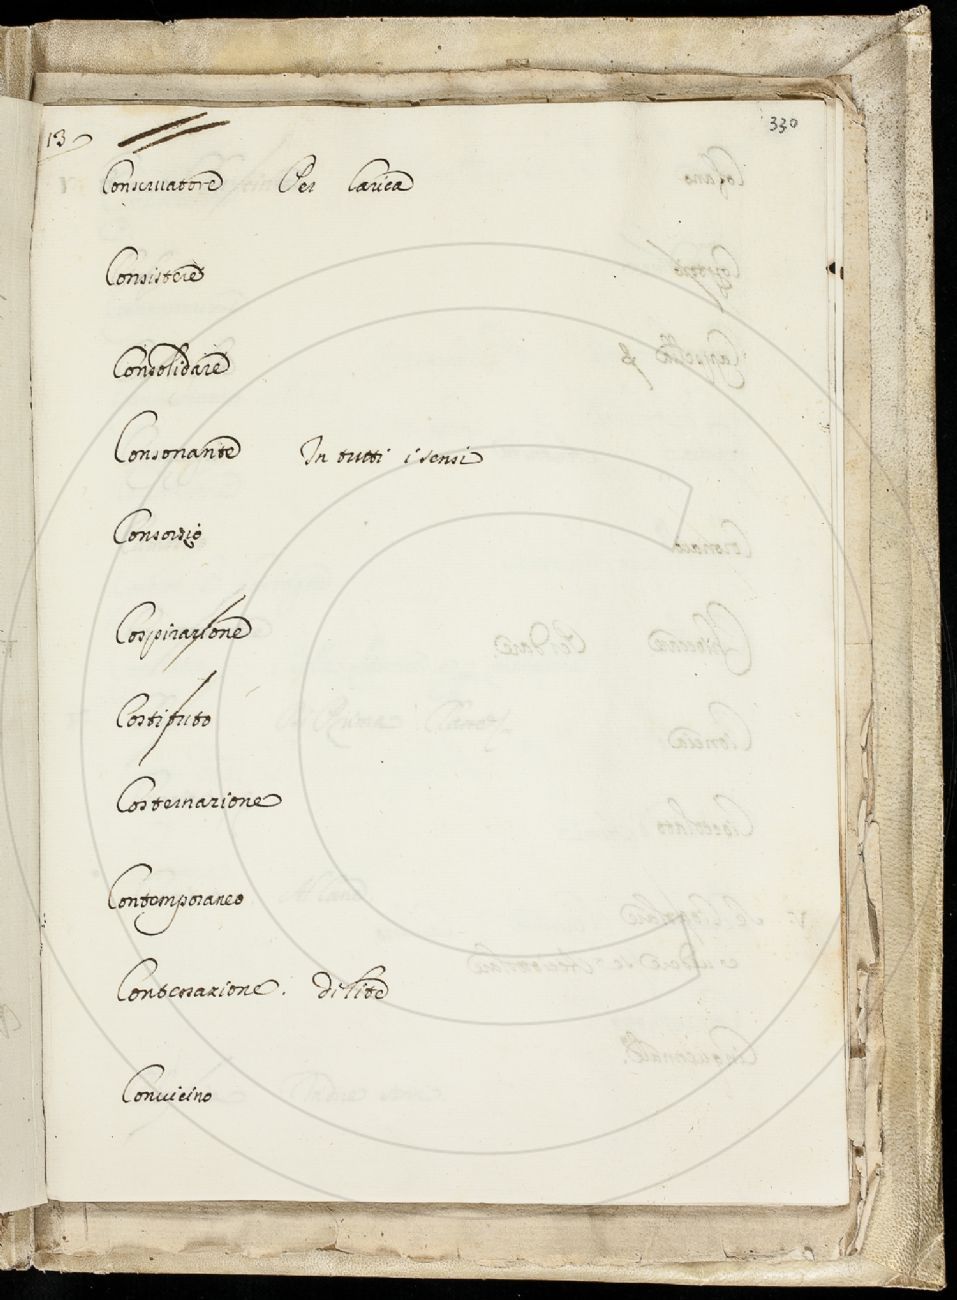 13
330
Conseruatore Per Carica
Consistere
Consolidare
Consonante In tutti i sensi
Consorzio
Cospirazione
Costituto
Costernazione
Contemporaneo
Contestazione. di lite
Conuicino